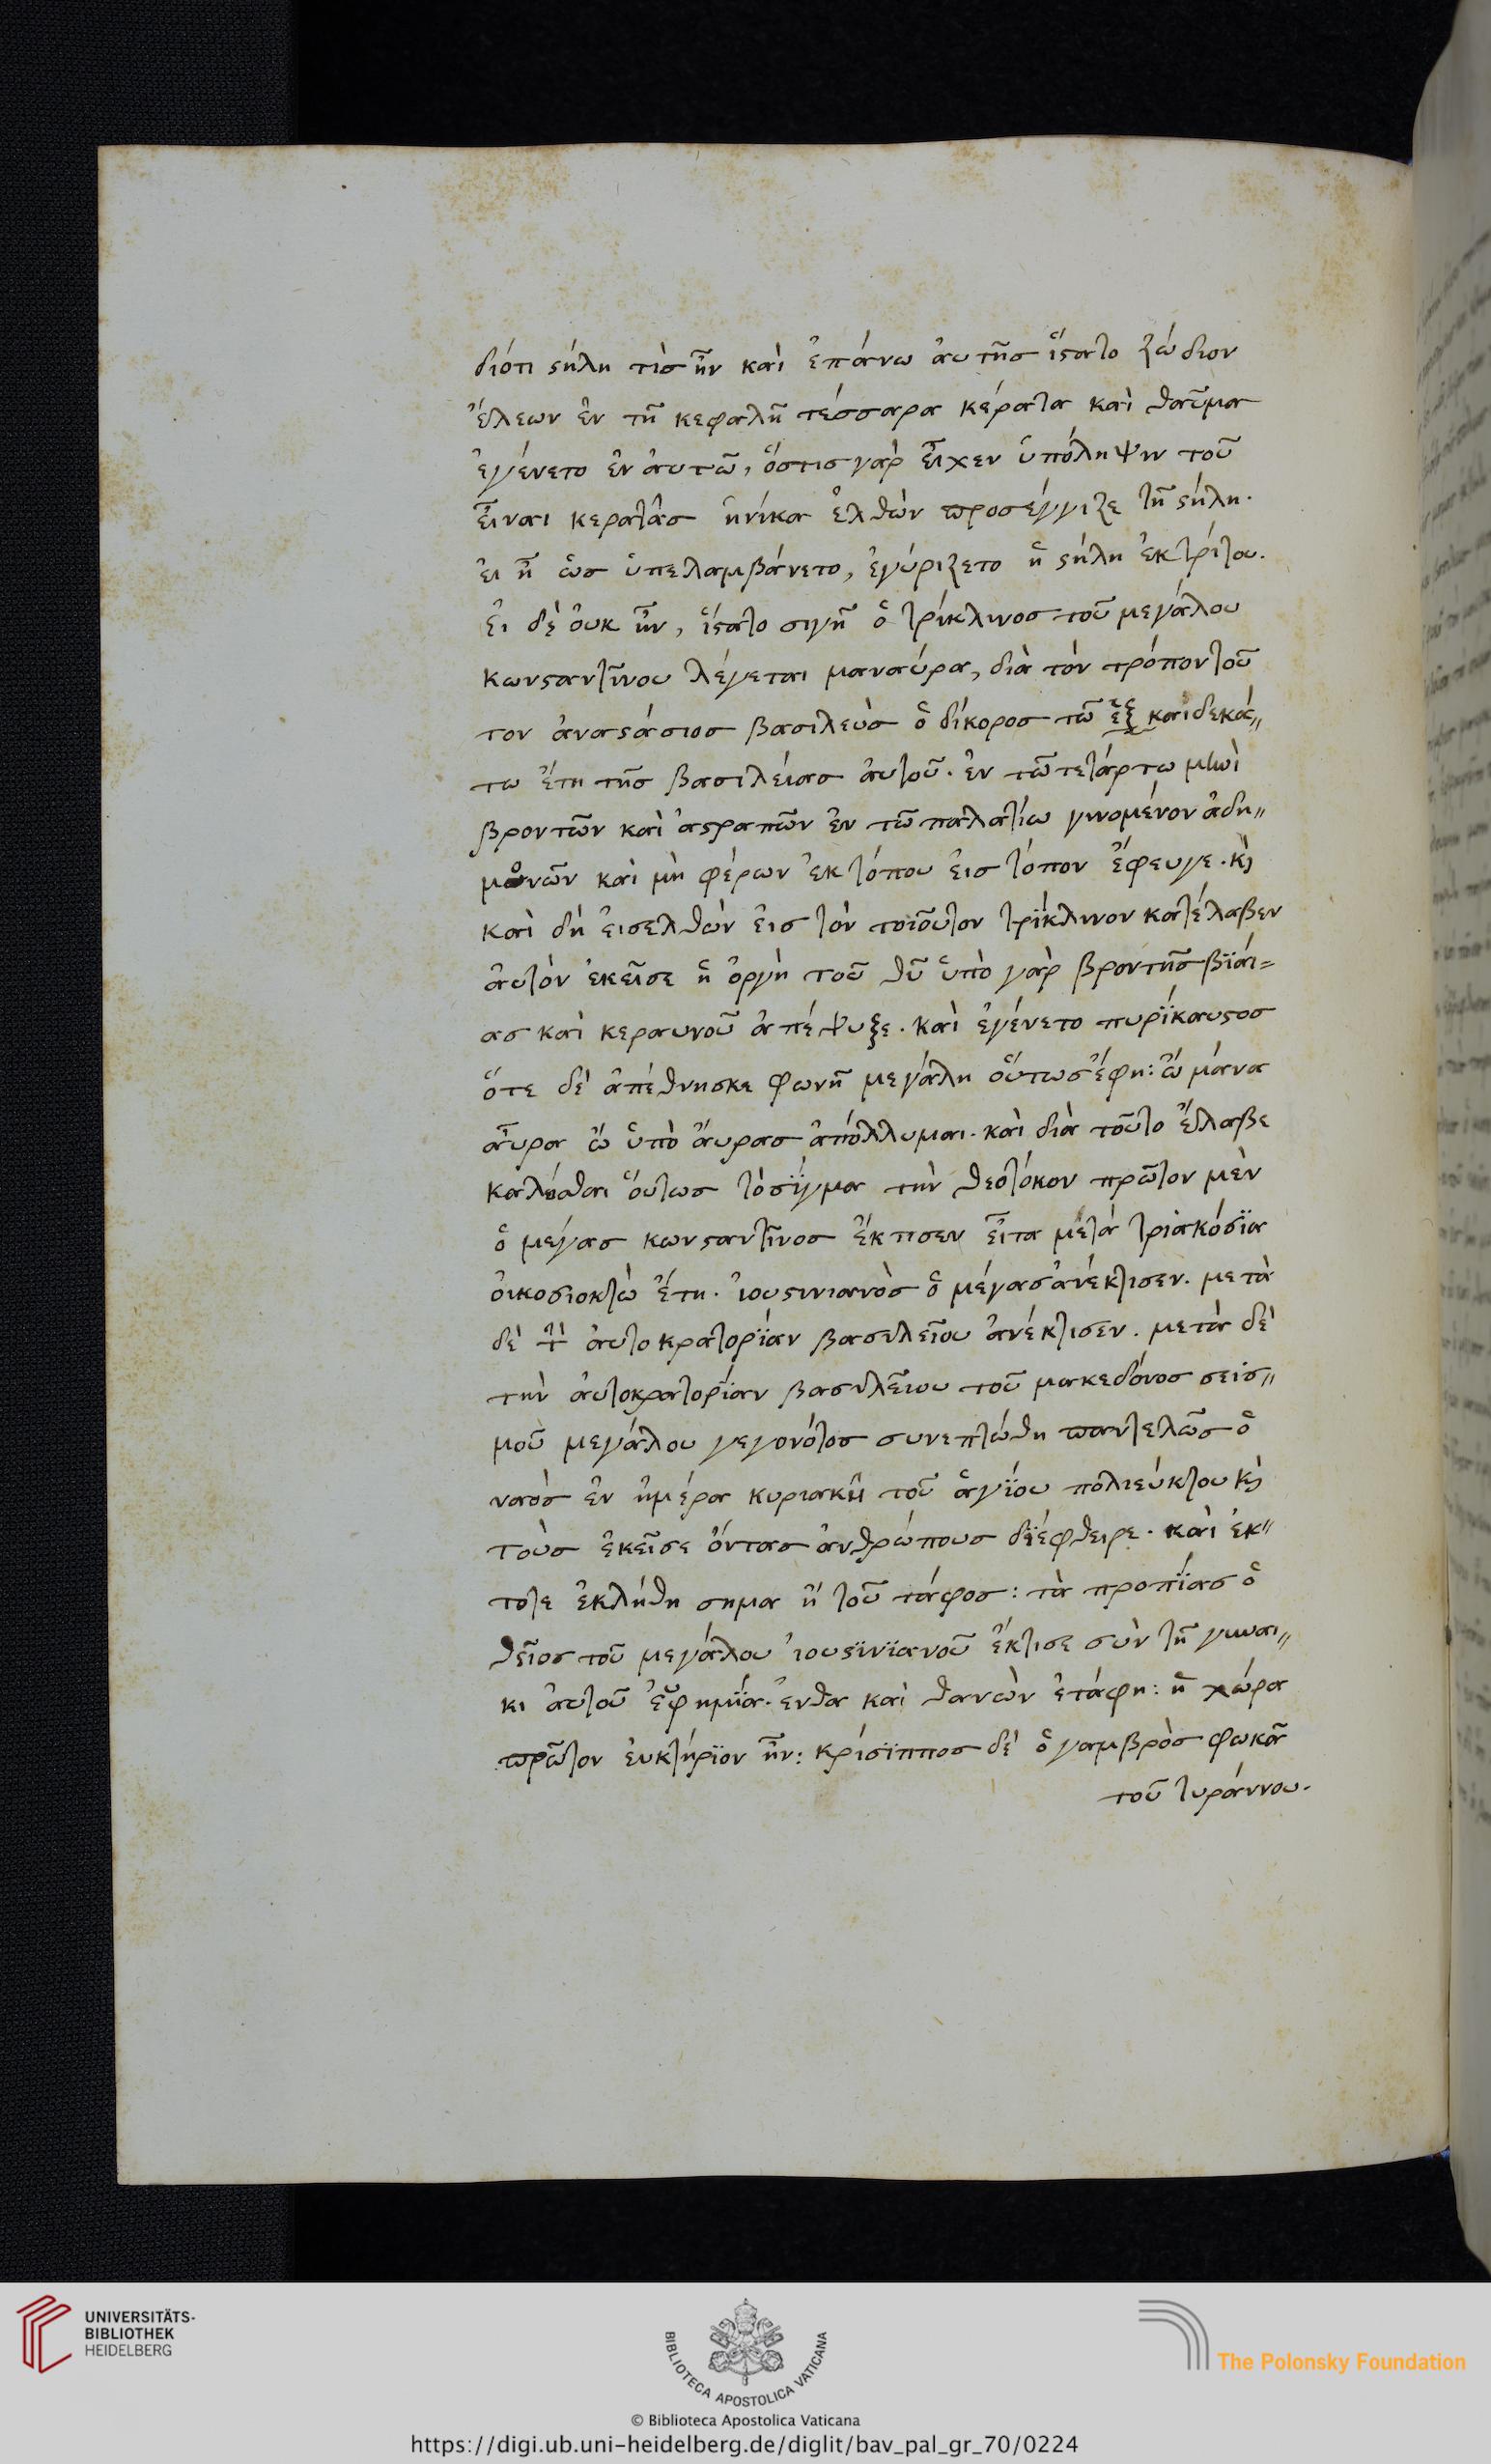 διότι ϛήλη τὶσ ἦν καὶ ἐπάνω ἀυτῆσ ἵϛατο ζώδιον
ἔλεων ἐν τῆ κεφαλῆ τέσσαρα κέρατα καὶ θαῦμα
ἐγένετο ἐν ἀυτῶ, ὅστισ γὰρ εἶχεν ὑπόληψιν τοῦ
εἶναι κερατᾶσ ἡνίκα ἐλθὼν προσέγγιζε τῆ ϛήλη.
ἐι ἦ ὡσ ὑπελαμβάνετο, ἐγύριζετο ἡ ϛήλη ἐκτρίτου.
ἐι δὲ ὀυκ ἦν, ἵϛατο σιγῆ ὁ τρίκλινοσ τοῦ μεγάλου
κωνϛαντίνου λέγεται μαναύρα, διὰ τόν τρόπον τοῦ
τον ἀναϛάσιοσ βασιλεὺσ ὁ δίκοροσ τῶ ἓξ καιδεκά〃
τω ἔτη τῆσ βασιλείασ ἀυτοῦ. ἐν τῶ τετάρτω μηνὶ
βροντῶν καὶ ἀϛραπῶν ἐν τῶ παλατίω γινομένον ἀδη〃
μονῶν καὶ μὴ φέρων ἐκ τόπου ἐισ τόπον ἔφευγε. κὶ
καὶ δὴ ἐισελθὼν ἐισ τὸν τοιοῦτον τρίκλινον κατέλαβεν
ἀυτὸν ἐκεῖσε ἡ ὀργὴ τοῦ θῦ ὑπὸ γὰρ βροντῆσ βϊαί=
ασ καὶ κεραυνοῦ ἀπέψυξε. καὶ ἐγένετο πυρϊκαυϛοσ
ὅτε δὲ ἀπέθνησκε φωνῆ μεγάλη ὅυτωσ ἔφη: ὤ μάνα
ἆυρα ὤ ὑπὸ ἄυρασ ἀπόλλυμαι. καὶ διὰ τοῦτο ἔλαβε
καλεῖσθαι ὅυτωσ τὸ σϊγμα τὴν θεοτόκον πρῶτον μὲν
ὁ μέγασ κωνϛαντῖνοσ ἔκτισεν εἶτα μετά τριακόσϊα
ὀικοσιοκτὼ ἔτη. ἰουϛινιανὸσ ὁ μέγασ ἀνέκτισεν. μετὰ
δὲ τὴ ἀυτοκρατορΐαν βασυλεῖου ἀνέκτισεν. μετὰ δὲ
τὴν ἀυτοκρατορΐαν βασυλεῖου τοῦ μακεδόνοσ σεισ〃
μοῦ μεγάλου γεγονότοσ συνεπτώθη παντελῶσ ὁ
ναὸσ ἐν ἡμέρα κυριακῆ τοῦ ἁγΐου πολιεύκτου κὶ
τοὺσ ἐκεῖσε ὄντασ ἀνθρώπουσ δϊέφθειρε. καὶ ἐκ〃
τοτε ἐκλήθη σημα ἤ τοῦ τάφοσ: τὰ προπΐασ ὁ
θεῖοσ τοῦ μεγάλου ἰουϛϊνϊανοῦ ἔκτισε σὺν τῆ γυναι〃
κι ἀυτοῦ ἐυφημΐα. ἔνθα καὶ θανὼν ἐτάφη: ἡ χώρα
πρῶτον ἐυκτήρϊον ἦν: κρίσϊπποσ δὲ ὁ γαμβρὸσ φωκᾶ
τοῦ τυράννου.
UNIVERSITÄTS-
BIBLIOTHEK
HEIDELBERG
BIBLIOTECA APOSTOLICA VATICANA
The Polonsky Foundation
© Biblioteca Apostolica Vaticana
https://digi.ub.uni-heidelberg.de/diglit/bav_pal_gr_70/0224